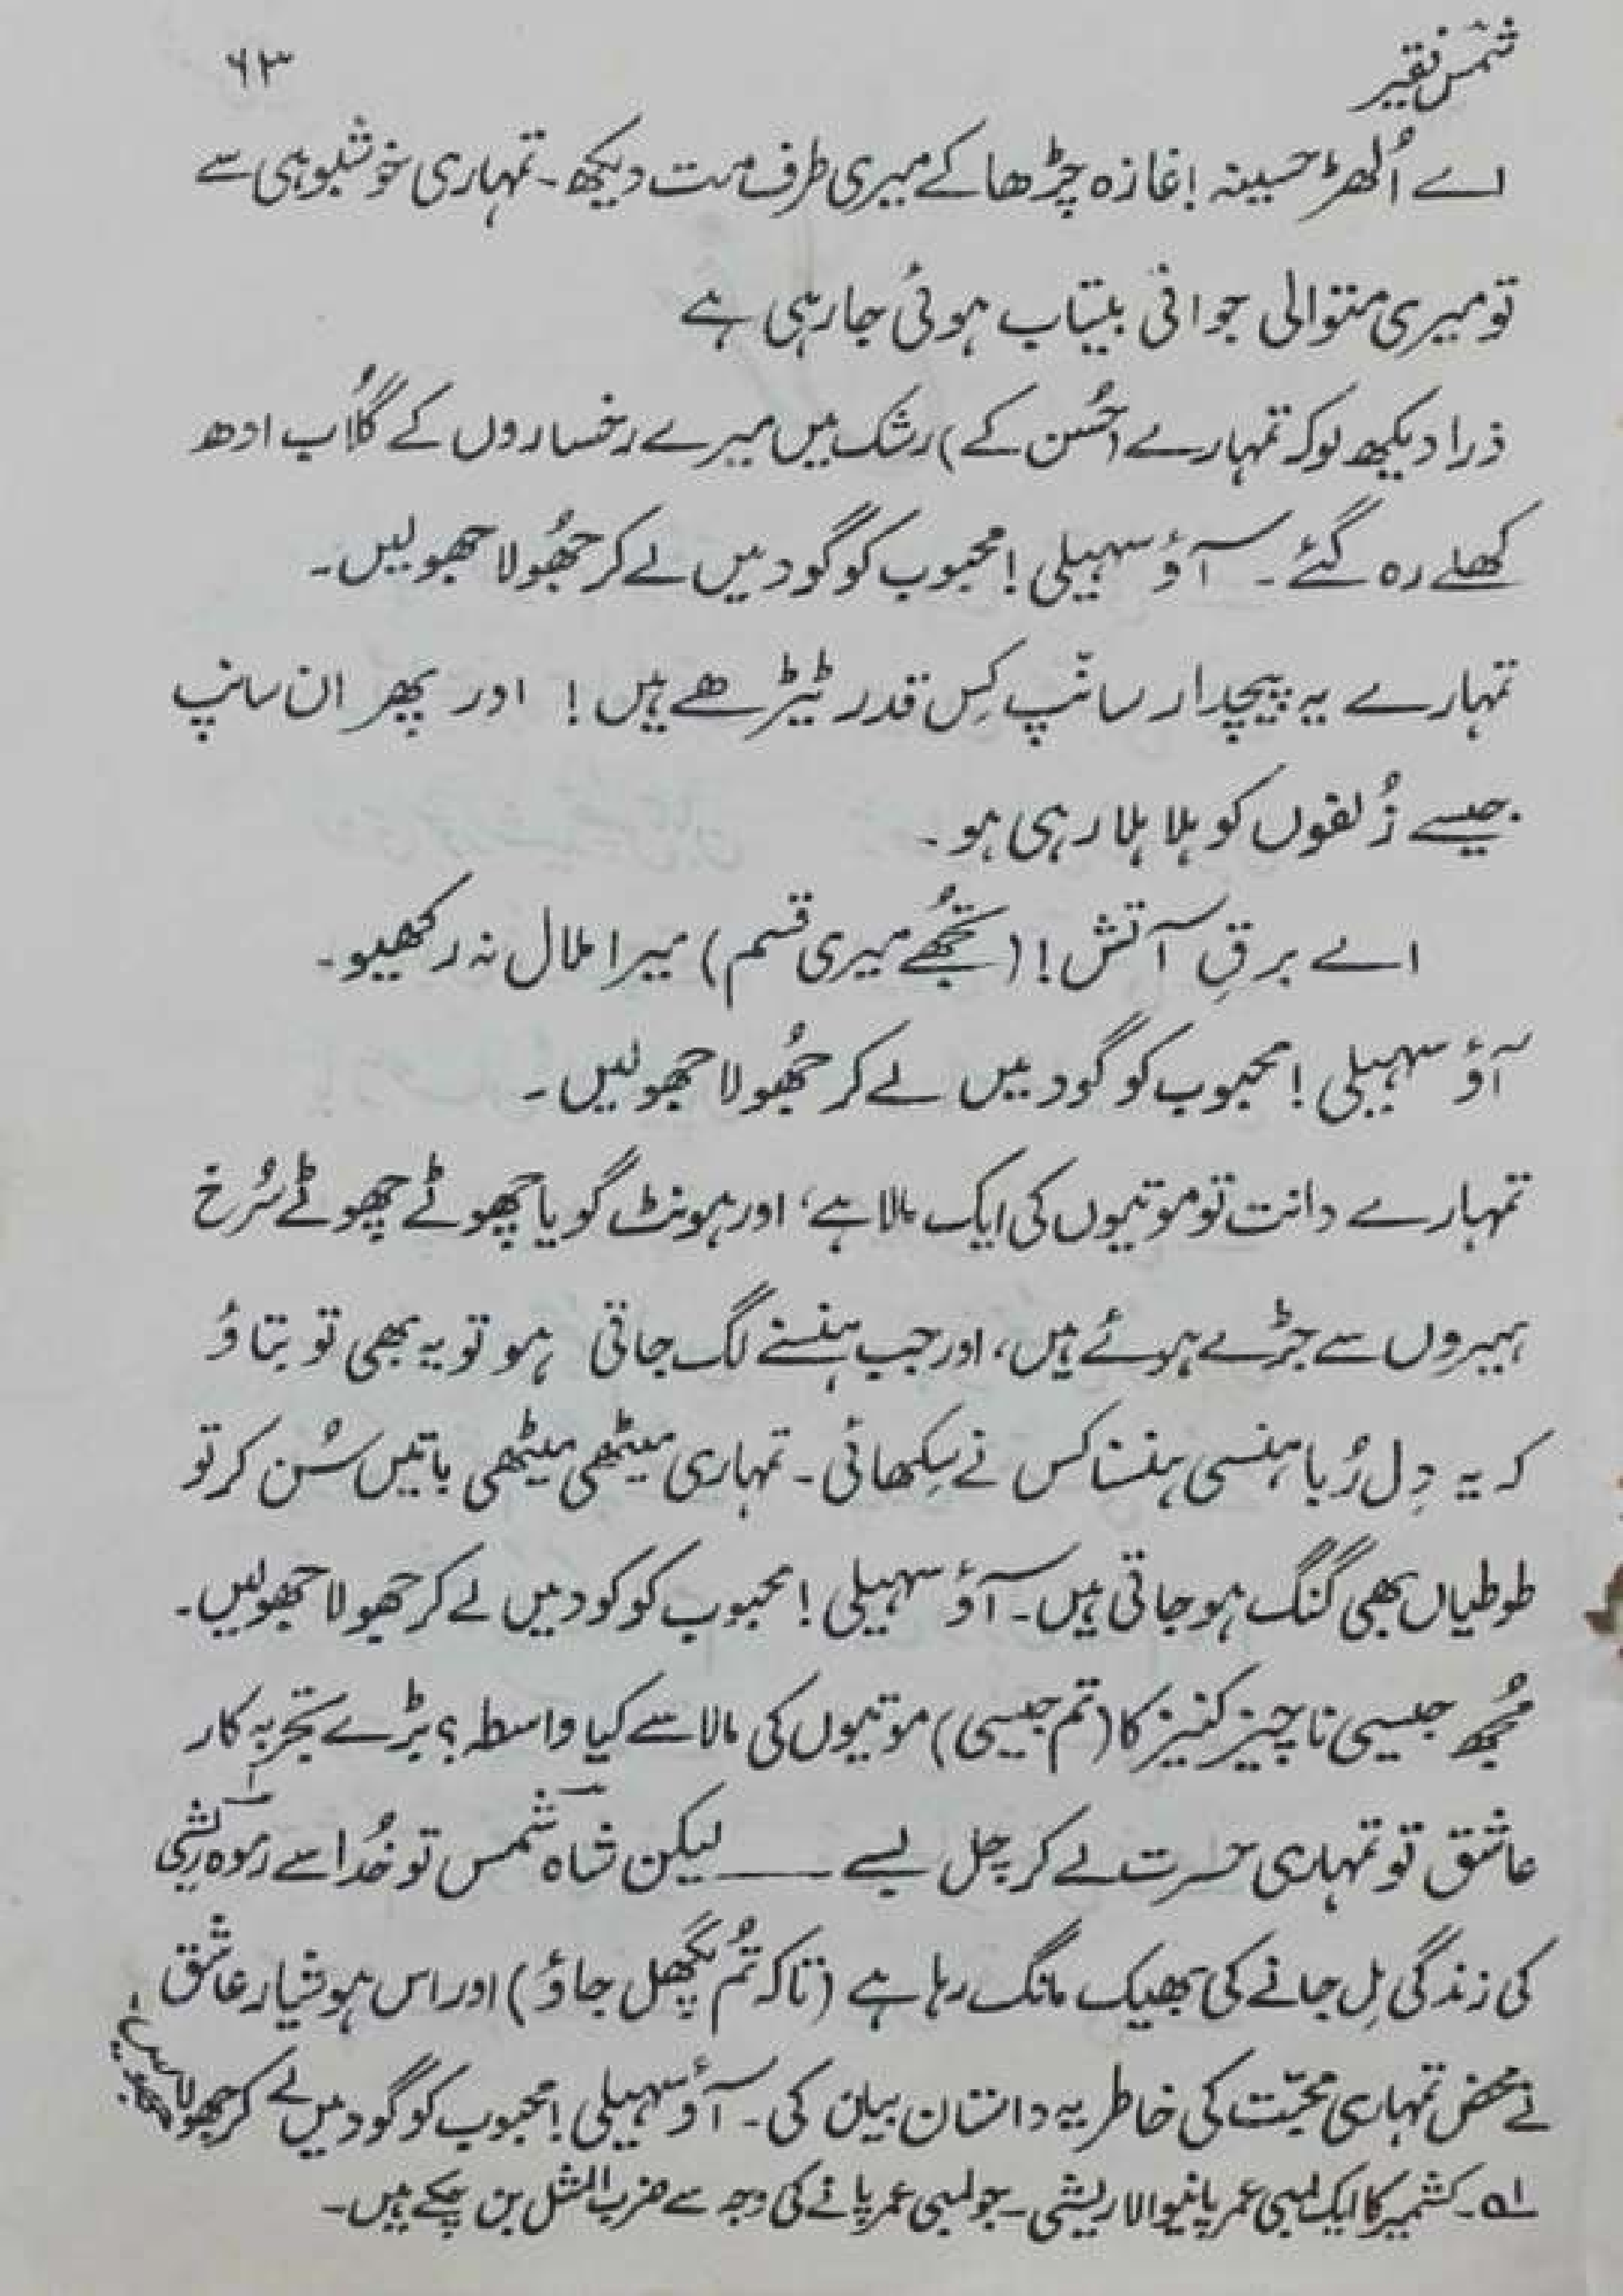 شمس فقیر
۶۳
اے اُلھڑ حسینہ! غازہ چڑھا کے میری طرف مت دیکھ۔ تمہاری خوشبو ہی سے
تو میری متوالی جوانی بیتاب ہوئی جا رہی ہے
ذرا دیکھ لو کہ تمہارے (حُسن کے) رشک میں میرے رخساروں کے گُلاب ادھ
کھلے رہ گئے۔ آؤ سہیلی! محبوب کو گود میں لے کر جھُولا جھولیں۔
تمہارے یہ پیچدار سانپ کِس قدر ٹیڑھے ہیں! اور پھر ان سانپ
جیسے زُلفوں کو ہلا ہلا رہی ہو۔
اے برقِ آتش! (تجھُے میری قسم) میرا ملال نہ رکھیو۔
آؤ سہیلی! محبوب کو گود میں لے کر جھُولا جھولیں۔
تمہارے دانت تو موتیوں کی ایک مالا ہے، اور ہونٹ گویا چھوٹے چھوٹے سُرخ
ہیروں سے جڑے ہوئے ہیں، اور جب ہنسنے لگ جاتی ہو تو یہ بھی تو بتاؤ
کہ یہ دِل رُبا ہنسی ہنسنا کس نے سِکھائی۔ تمہاری میٹھی میٹھی باتیں سُن کر تو
طوطیاں بھی گنگ ہو جاتی ہیں۔ آؤ سہیلی! محبوب کو کود میں لے کر جھولا جھولیں۔
مُجھ جیسی ناچیز کنیز کا (تم جیسی) موتیوں کی مالا سے کیا واسطہ؟ بڑے تجربہ کار
عاشق تو تمہاری حسرت لے کر چل بسے ــــــ لیکن شاہ شمس تو خُدا سے زوہ رِشی۱
کی زندگی مِل جانے کی بھیک مانگ رہا ہے (تاکہ تُم پگھل جاؤ) اور اس ہوشیار عاشق
نے محض تمہاری محبّت کی خاطر یہ داستان بیان کی۔ آؤ سہیلی! محبوب کو گود میں لے کر جھولا جھولیں۔
۱ھ۔ کشمیر کا ایک لمبی عمر پانیوالا ریشی۔ جو لمبی عمر پانے کی وجہ سے ضرب المثل بن چکے ہیں۔